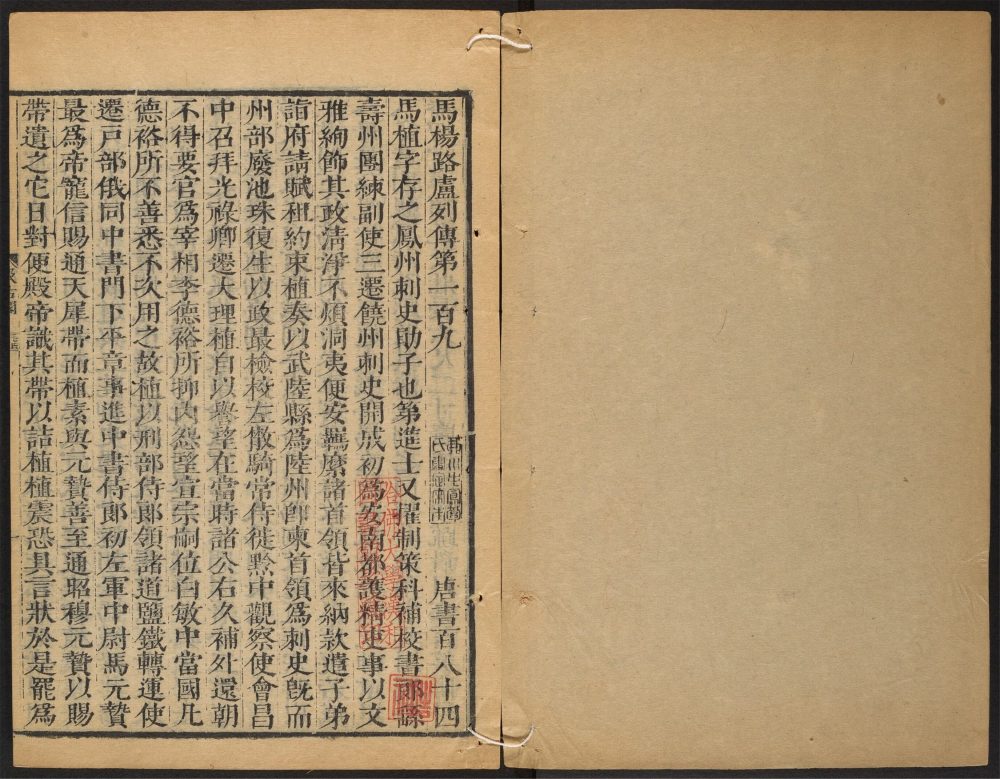 馬楊路盧列傳第一百九 唐書百八十四
馬植字存之鳳州刺史勛子也第進士又擢制策科補校書郎繇
壽州團練副使三遷饒州刺史開成初爲安南都護精吏事以文
雅絢飾其政清淨不煩洞夷便安羈縻諸首領皆來納款遣子弟
詣府請賦租約束植奏以武陸縣爲陸州卽柬首領爲刺史旣而
州部廢池珠復生以政最檢校左散騎常侍徙黔中觀察使會昌
中召拜光祿卿遷大理植自以譽望在當時諸公右久補外還朝
不得要官爲宰相李德裕所抑內怨望宣宗嗣位白敏中當國凡
德裕所不善悉不次用之故植以刑部侍郎領諸道鹽鐵轉運使
遷戶部俄同中書門下平章事進中書侍郎初左軍中尉馬元贄
最爲帝寵信賜通天犀帶而植素與元贄善至通昭穆元贄以賜
帶遺之它日對便殿帝識其帶以詰植植震恐具言狀於是罷爲